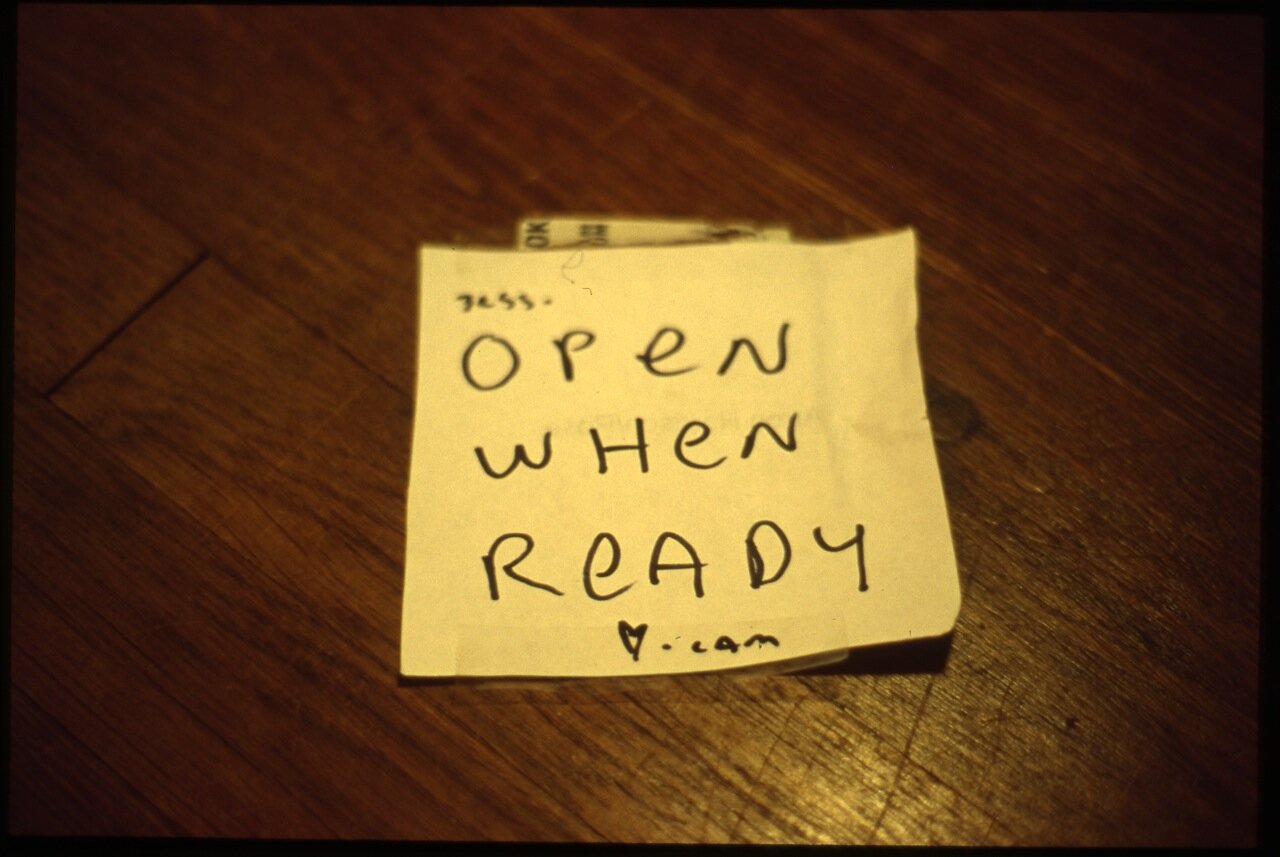 OK
Jess.
OPeN
WHeN
ReADY
♥. cam